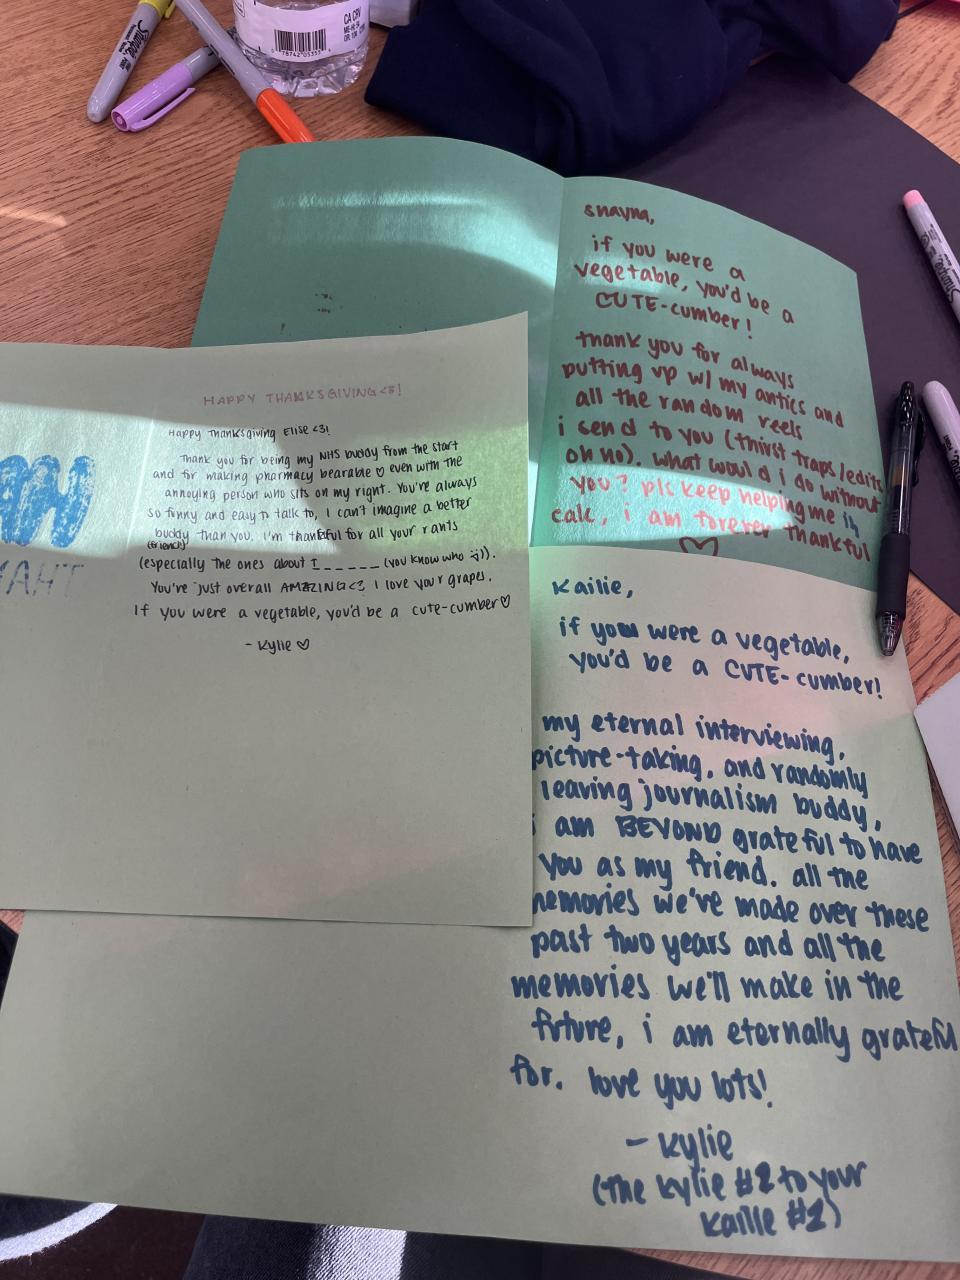 Sharpie
CA CRV
ME-HI 5¢
OR 10¢
78742 05355
Sharpie
snayna,
if you were a
vegetable, you'd be a
CUTE-cumber!
thank you for always
putting up w/ my antics and
all the random reels
i send to you (thirst traps/edits
oh no). what would i do without
you? pls keep helping me in
calc, i am forever thankful
♡
HAPPY THANKSGIVING<3!
Happy Thanksgiving Elise <3!
Thank you for being my NHS buddy from the start
and for making pharmacy bearable ♡ even with the
annoying person who sits on my right. You're always
so funny and easy to talk to, I can't imagine a better
buddy than you. I'm thankful for all your rants
(friend)
(especially the ones about I______ (you know who :)).
You're just overall AMAZING<3 I love your grapes.
If you were a vegetable, you'd be a cute-cumber♡
- Kylie ♡
Kailie,
if you were a vegetable,
you'd be a CUTE-cumber!
my eternal interviewing,
picture-taking, and randomly
leaving journalism buddy,
i am BEYOND grateful to have
you as my friend. all the
memories we've made over these
past two years and all the
memories we'll make in the
future, i am eternally grateful
for. love you lots!
- Kylie
(the Kylie #2 to your
Kailie #1)